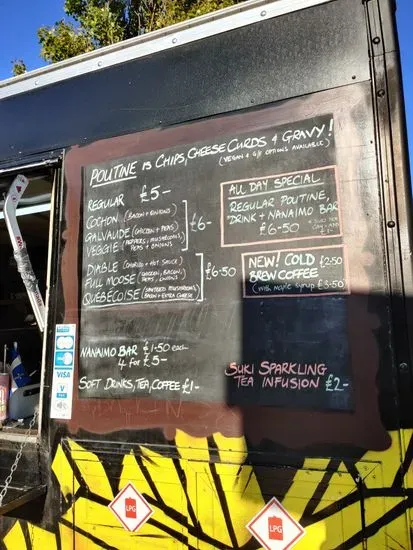 POUTINE IS CHIPS, CHEESE CURDS & GRAVY!
(VEGAN & G/F OPTIONS AVAILABLE)
REGULAR £5-
COCHON (BACON + ONIONS)
GALVAUDE (CHICKEN + PEAS)
VEGGIE (PEPPERS, MUSHROOMS, PEAS + ONIONS)
£6-
DIABLE (CHORIZO + HOT SAUCE)
FULL MOOSE (CHICKEN, BACON, PEAS, ONIONS)
QUÉBÉCOISE (SAUTÉED MUSHROOMS, BACON + EXTRA CHEESE)
£6-50
NANAIMO BAR £1-50 each
4 FOR £5-
SOFT DRINKS, TEA, COFFEE £1-
ALL DAY SPECIAL
REGULAR POUTINE,
*DRINK + NANAIMO BAR
£6-50
NEW! COLD £2-50
BREW COFFEE
(with maple syrup £3-50)
SUKI SPARKLING
TEA INFUSION £2-
VISA
LPG
LPG